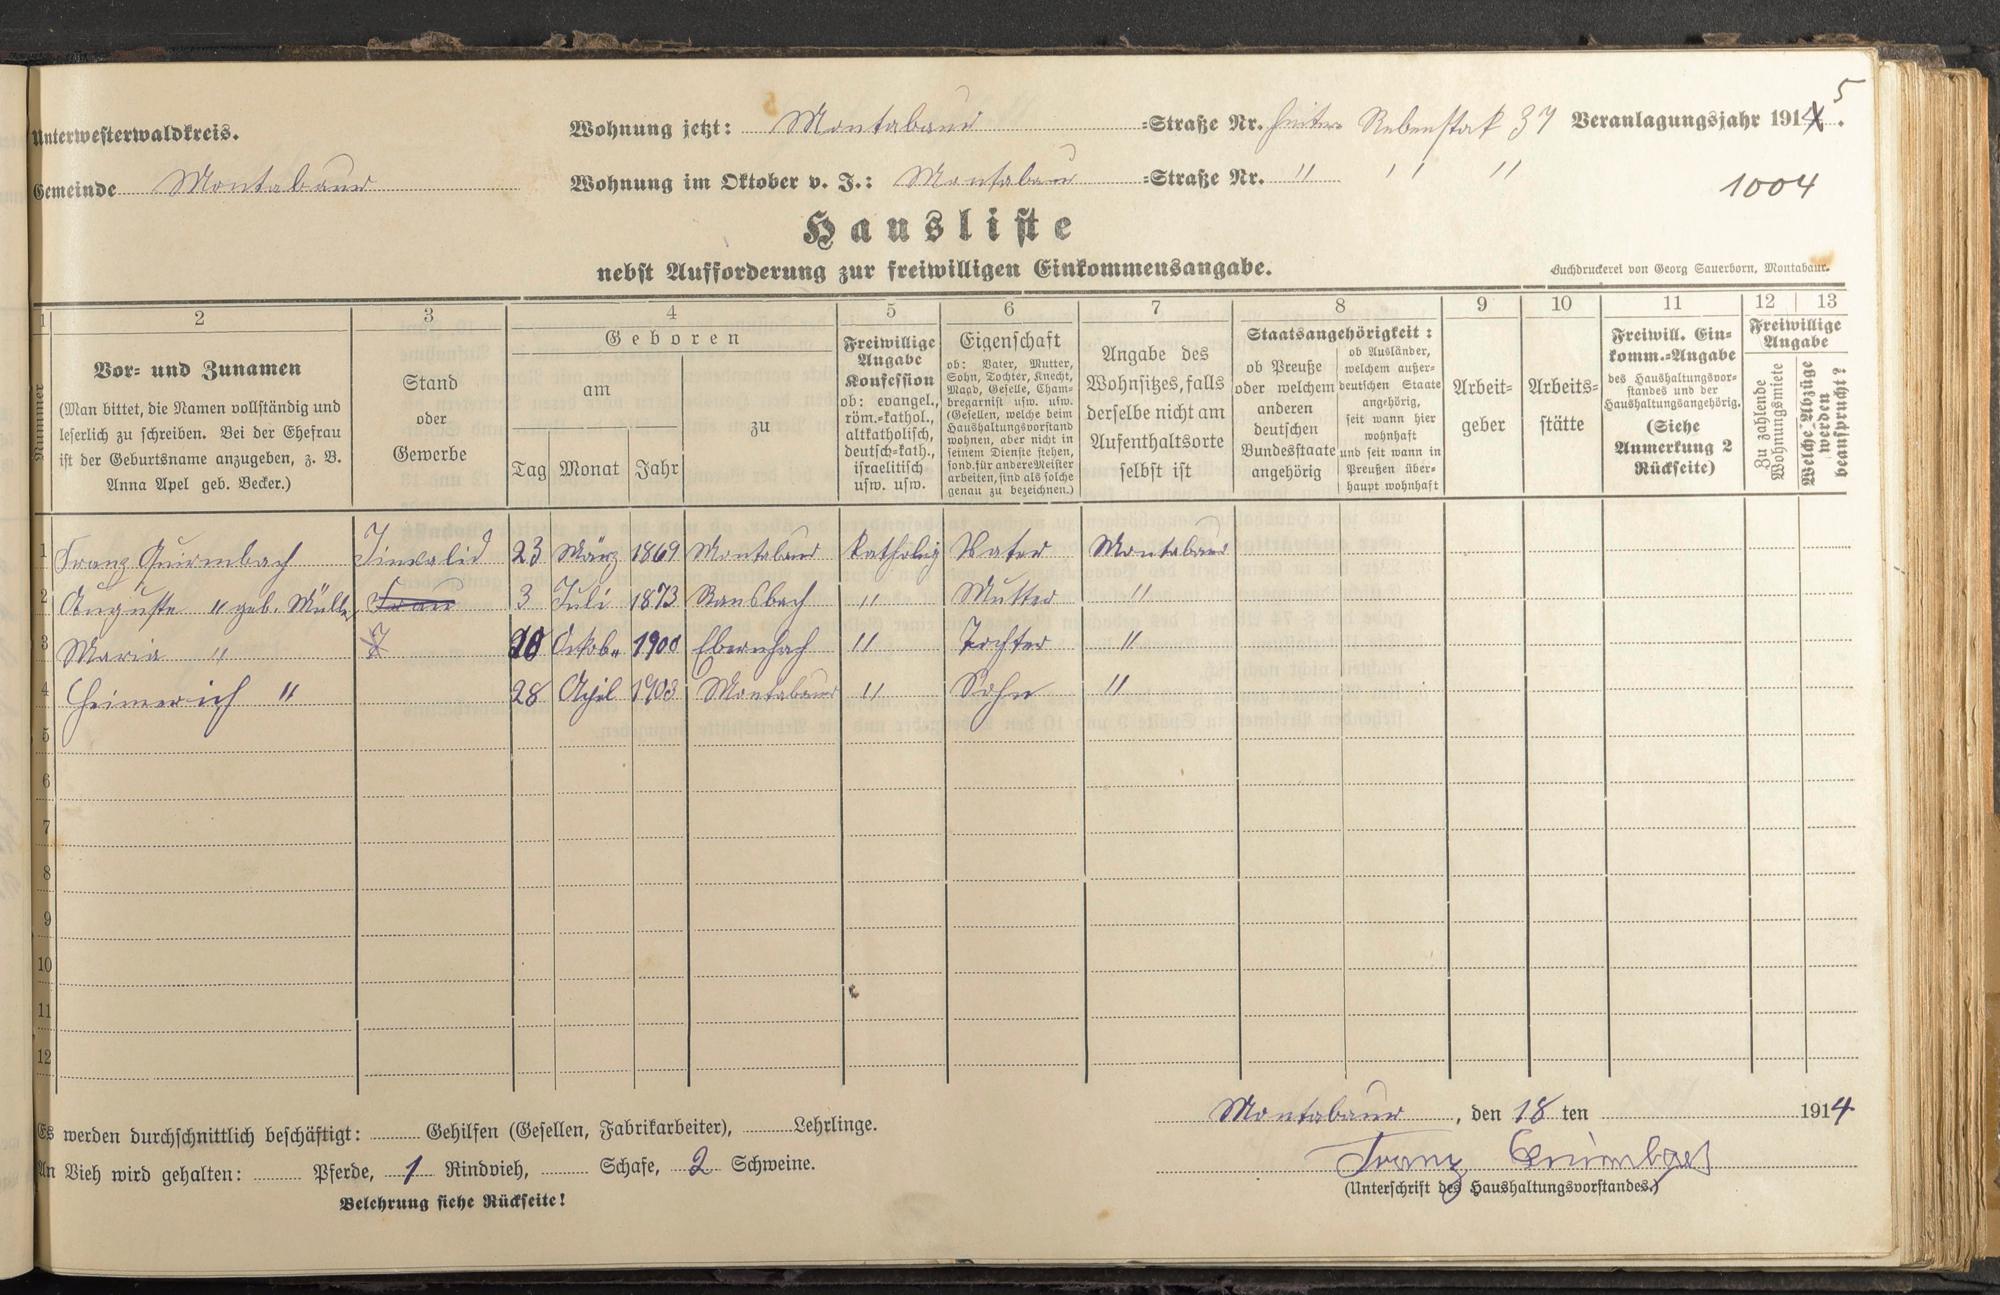 5
Unterwesterwaldkreis.
Wohnung jetzt: Montabaur -Straße Nr. hinter Rebenstok 37 Veranlagungsjahr 1914.
Gemeinde Montabaur
Wohnung im Oktober v. J.: Montabaur -Straße Nr. " " "
1004
Hausliste
nebst Aufforderung zur freiwilligen Einkommensangabe.
Buchdruckerei von Georg Sauerborn, Montabaur.
1 2 3 4 5 6 7 8 9 10 11 12 13
Nummer
Vor- und Zunamen
(Man bittet, die Namen vollständig und
leserlich zu schreiben. Bei der Ehefrau
ist der Geburtsname anzugeben, z. B.
Anna Apel geb. Becker.)
Stand
oder
Gewerbe
Geboren
am
Tag Monat Jahr
zu
Freiwillige
Angabe
Konfession
ob: evangel.,
röm.-kathol.,
altkatholisch,
deutsch-kath.,
israelitisch
usw. usw.
Eigenschaft
ob: Vater, Mutter,
Sohn, Tochter, Knecht,
Magd, Geselle, Cham-
bregarnist usw. usw.
(Gesellen, welche beim
Haushaltungsvorstand
wohnen, aber nicht in
seinem Dienste stehen,
sond. für andere Meister
arbeiten, sind als solche
genau zu bezeichnen.)
Angabe des
Wohnsitzes, falls
derselbe nicht am
Aufenthaltsorte
selbst ist
Staatsangehörigkeit:
ob Preuße
oder welchem
anderen
deutschen
Bundesstaate
angehörig
ob Ausländer,
welchem außer-
deutschen Staate
angehörig,
seit wann hier
wohnhaft
und seit wann in
Preußen über-
haupt wohnhaft
Arbeit-
geber
Arbeits-
stätte
Freiwill. Ein-
komm.-Angabe
des Haushaltungsvor-
standes und der
Haushaltungsangehörig.
(Siehe
Anmerkung 2
Rückseite)
Freiwillige
Angabe
Zu zahlende
Wohnungsmiete
Welche Abzüge
werden
beansprucht?
1 Franz Quirmbach Invalid 23 März 1869 Montabaur katholig Vater Montabaur
2 Auguste " geb. Müller Frau 3 Juli 1873 Ransbach " Mutter "
3 Maria " 10 Oktob. 1900 Ebernhach " Tochter "
4 Heinerich " 28 April 1903 Montabaur " Sohn "
5
6
7
8
9
10
11
12
Es werden durchschnittlich beschäftigt: Gehilfen (Gesellen, Fabrikarbeiter), Lehrlinge.
An Vieh wird gehalten: Pferde, 1 Rindvieh, Schafe, 2 Schweine.
Belehrung siehe Rückseite!
Montabaur, den 18 ten 1914
Franz Quirmbach
(Unterschrift des Haushaltungsvorstandes.)